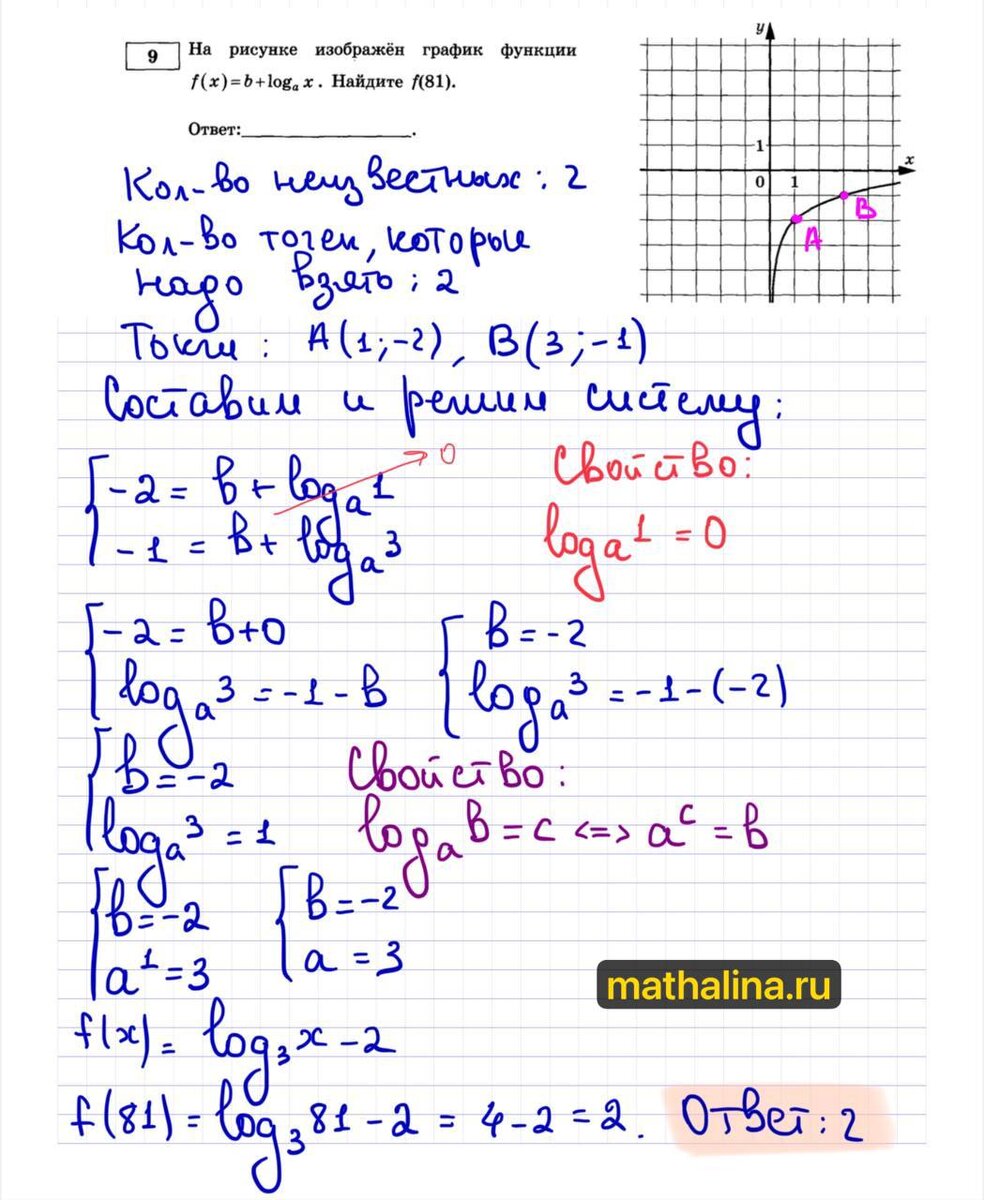 9
На рисунке изображён график функции
f(x)=b+logₐ x. Найдите f(81).
Ответ:__________________.
y
1
x
0 1
A
B
Кол-во неизвестных: 2
Кол-во точек, которые
надо взять: 2
Точки: A(1;-2), B(3;-1)
Составим и решим систему:
{-2 = b + logₐ1 → 0
{-1 = b + logₐ3
Свойство:
logₐ1 = 0
{-2 = b+0
{logₐ3 = -1 - b
{b = -2
{logₐ3 = -1-(-2)
{b = -2
{logₐ3 = 1
Свойство:
logₐb = c <=> aᶜ = b
{b = -2
{a¹ = 3
{b = -2
{a = 3
mathalina.ru
f(x) = log₃x - 2
f(81) = log₃81 - 2 = 4 - 2 = 2. Ответ: 2